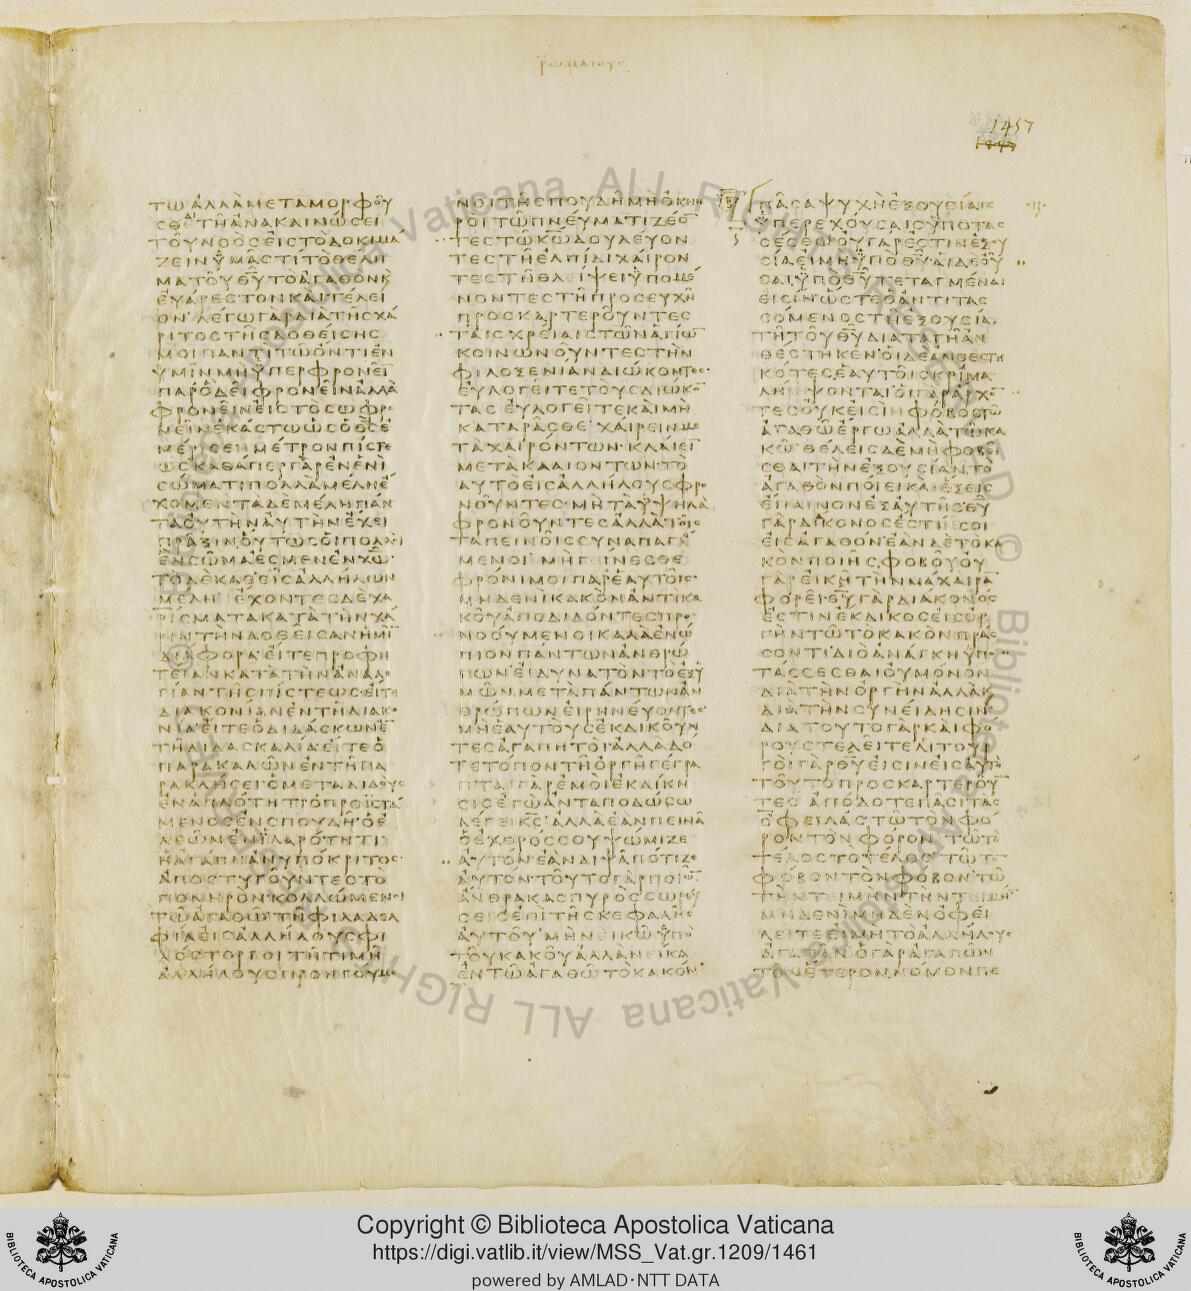 1457
ΤΩ ΑΛΛΑ ΜΕΤΑΜΟΡΦΟΥ
ΤΟΥ ΝΟΟΣ ΕΙΣ ΤΟ ΔΟΚΙΜΑ
ΖΕΙΝ ΥΜΑΣ ΤΙ ΤΟ ΘΕΛΗ
ΜΑ ΤΟΥ ΘΥ ΤΟ ΑΓΑΘΟΝ Κ
ΕΥΑΡΕΣΤΟΝ ΚΑΙ ΤΕΛΕΙ
ΟΝ ΛΕΓΩ ΓΑΡ ΔΙΑ ΤΗΣ ΧΑ
ΡΙΤΟΣ ΤΗΣ ΔΟΘΕΙΣΗΣ
ΜΟΙ ΠΑΝΤΙ ΤΩ ΟΝΤΙ ΕΝ
ΥΜΙΝ ΜΗ ΥΠΕΡΦΡΟΝΕΙ
ΠΑΡ Ο ΔΕΙ ΦΡΟΝΕΙΝ ΑΛΛΑ
ΦΡΟΝΕΙΝ ΕΙΣ ΤΟ ΣΩΦΡΟ
ΝΕΙΝ ΕΚΑΣΤΩ ΩΣ Ο ΘΣ Ε
ΜΕΡΙΣΕΝ ΜΕΤΡΟΝ ΠΙΣΤΕ
ΩΣ ΚΑΘΑΠΕΡ ΓΑΡ ΕΝ ΕΝΙ
ΣΩΜΑΤΙ ΠΟΛΛΑ ΜΕΛΗ Ε
ΧΟΜΕΝ ΤΑ ΔΕ ΜΕΛΗ ΠΑΝ
ΤΑ ΟΥ ΤΗΝ ΑΥΤΗΝ ΕΧΕΙ
ΠΡΑΞΙΝ ΟΥΤΩΣ ΟΙ ΠΟΛΛΟΙ
ΕΝ ΣΩΜΑ ΕΣΜΕΝ ΕΝ ΧΩ
ΤΟ ΔΕ ΚΑΘ ΕΙΣ ΑΛΛΗΛΩΝ
ΜΕΛΗ ΕΧΟΝΤΕΣ ΔΕ ΧΑ
ΡΙΣΜΑΤΑ ΚΑΤΑ ΤΗΝ ΧΑ
ΡΙΝ ΤΗΝ ΔΟΘΕΙΣΑΝ ΗΜΙ
ΔΙΑΦΟΡΑ ΕΙΤΕ ΠΡΟΦΗ
ΤΕΙΑΝ ΚΑΤΑ ΤΗΝ ΑΝΑΛΟ
ΓΙΑΝ ΤΗΣ ΠΙΣΤΕΩΣ ΕΙΤΕ
ΔΙΑΚΟΝΙΑΝ ΕΝ ΤΗ ΔΙΑΚΟ
ΝΙΑ ΕΙΤΕ Ο ΔΙΔΑΣΚΩΝ Ε
ΤΗ ΔΙΔΑΣΚΑΛΙΑ ΕΙΤΕ Ο
ΠΑΡΑΚΑΛΩΝ ΕΝ ΤΗ ΠΑ
ΡΑΚΛΗΣΕΙ Ο ΜΕΤΑΔΙΔΟΥΣ
ΕΝ ΑΠΛΟΤΗΤΙ Ο ΠΡΟΙΣΤΑ
ΜΕΝΟΣ ΕΝ ΣΠΟΥΔΗ Ο Ε
ΛΕΩΝ ΕΝ ΙΛΑΡΟΤΗΤΙ
Η ΑΓΑΠΗ ΑΝΥΠΟΚΡΙΤΟΣ
ΑΠΟΣΤΥΓΟΥΝΤΕΣ ΤΟ
ΠΟΝΗΡΟΝ ΚΟΛΛΩΜΕΝΟΙ
ΤΩ ΑΓΑΘΩ ΤΗ ΦΙΛΑΔΕΛ
ΦΙΑ ΕΙΣ ΑΛΛΗΛΟΥΣ ΦΙ
ΛΟΣΤΟΡΓΟΙ ΤΗ ΤΙΜΗ
ΑΛΛΗΛΟΥΣ ΠΡΟΗΓΟΥΜΕ
ΝΟΙ ΤΗ ΣΠΟΥΔΗ ΜΗ ΟΚΝΗ
ΡΟΙ ΤΩ ΠΝΕΥΜΑΤΙ ΖΕΟ
ΤΕΣ ΤΩ ΚΩ ΔΟΥΛΕΥΟΝ
ΤΕΣ ΤΗ ΕΛΠΙΔΙ ΧΑΙΡΟΝ
ΤΕΣ ΤΗ ΘΛΕΙΨΕΙ ΥΠΟΜΕ
ΝΟΝΤΕΣ ΤΗ ΠΡΟΣΕΥΧΗ
ΠΡΟΣΚΑΡΤΕΡΟΥΝΤΕΣ
ΤΑΙΣ ΧΡΕΙΑΙΣ ΤΩΝ ΑΓΙΩ
ΚΟΙΝΩΝΟΥΝΤΕΣ ΤΗΝ
ΦΙΛΟΞΕΝΙΑΝ ΔΙΩΚΟΝΤΕΣ
ΕΥΛΟΓΕΙΤΕ ΤΟΥΣ ΔΙΩΚΟ
ΤΑΣ ΕΥΛΟΓΕΙΤΕ ΚΑΙ ΜΗ
ΚΑΤΑΡΑΣΘΕ ΧΑΙΡΕΙΝ ΜΕ
ΤΑ ΧΑΙΡΟΝΤΩΝ ΚΛΑΙΕΙ
ΜΕΤΑ ΚΛΑΙΟΝΤΩΝ ΤΟ
ΑΥΤΟ ΕΙΣ ΑΛΛΗΛΟΥΣ ΦΡΟ
ΝΟΥΝΤΕΣ ΜΗ ΤΑ ΥΨΗΛΑ
ΦΡΟΝΟΥΝΤΕΣ ΑΛΛΑ ΤΟΙΣ
ΤΑΠΕΙΝΟΙΣ ΣΥΝΑΠΑΓΟ
ΜΕΝΟΙ ΜΗ ΓΕΙΝΕΣΘΕ
ΦΡΟΝΙΜΟΙ ΠΑΡ ΕΑΥΤΟΙΣ
ΜΗΔΕΝΙ ΚΑΚΟΝ ΑΝΤΙ ΚΑ
ΚΟΥ ΑΠΟΔΙΔΟΝΤΕΣ ΠΡΟ
ΝΟΟΥΜΕΝΟΙ ΚΑΛΑ ΕΝΩ
ΠΙΟΝ ΠΑΝΤΩΝ ΑΝΘΡΩ
ΠΩΝ ΕΙ ΔΥΝΑΤΟΝ ΤΟ ΕΞ Υ
ΜΩΝ ΜΕΤΑ ΠΑΝΤΩΝ ΑΝ
ΘΡΩΠΩΝ ΕΙΡΗΝΕΥΟΝΤΕΣ
ΜΗ ΕΑΥΤΟΥΣ ΕΚΔΙΚΟΥΝ
ΤΕΣ ΑΓΑΠΗΤΟΙ ΑΛΛΑ ΔΟ
ΤΕ ΤΟΠΟΝ ΤΗ ΟΡΓΗ ΓΕΓΡΑ
ΠΤΑΙ ΓΑΡ ΕΜΟΙ ΕΚΔΙΚΗ
ΣΙΣ ΕΓΩ ΑΝΤΑΠΟΔΩΣΩ
ΛΕΓΕΙ ΚΣ ΑΛΛΑ ΕΑΝ ΠΕΙΝΑ
Ο ΕΧΘΡΟΣ ΣΟΥ ΨΩΜΙΖΕ
ΑΥΤΟΝ ΕΑΝ ΔΙΨΑ ΠΟΤΙΖΕ
ΑΥΤΟΝ ΤΟΥΤΟ ΓΑΡ ΠΟΙΩ
ΑΝΘΡΑΚΑΣ ΠΥΡΟΣ ΣΩΡΕΥ
ΣΕΙΣ ΕΠΙ ΤΗΣ ΚΕΦΑΛΗΣ
ΑΥΤΟΥ ΜΗ ΝΕΙΚΩ ΥΠΟ
ΤΟΥ ΚΑΚΟΥ ΑΛΛΑ ΝΕΙΚΑ
ΕΝ ΤΩ ΑΓΑΘΩ ΤΟ ΚΑΚΟΝ
ΠΑΣΑ ΨΥΧΗ ΕΞΟΥΣΙΑΙΣ
ΥΠΕΡΕΧΟΥΣΑΙΣ ΥΠΟΤΑΣ
ΣΕΣΘΩ ΟΥ ΓΑΡ ΕΣΤΙΝ ΕΞΟΥ
ΣΙΑ ΕΙ ΜΗ ΥΠΟ ΘΥ ΑΙ ΔΕ ΟΥ
ΣΑΙ ΥΠΟ ΘΥ ΤΕΤΑΓΜΕΝΑΙ
ΕΙΣΙΝ ΩΣΤΕ Ο ΑΝΤΙΤΑΣ
ΣΟΜΕΝΟΣ ΤΗ ΕΞΟΥΣΙΑ
ΤΗ ΤΟΥ ΘΥ ΔΙΑΤΑΓΗ ΑΝ
ΘΕΣΤΗΚΕΝ ΟΙ ΔΕ ΑΝΘΕΣΤΗ
ΚΟΤΕΣ ΕΑΥΤΟΙΣ ΚΡΙΜΑ
ΛΗΜΨΟΝΤΑΙ ΟΙ ΓΑΡ ΑΡΧΟ
ΤΕΣ ΟΥΚ ΕΙΣΙΝ ΦΟΒΟΣ ΤΩ
ΑΓΑΘΩ ΕΡΓΩ ΑΛΛΑ ΤΩ ΚΑ
ΚΩ ΘΕΛΕΙΣ ΔΕ ΜΗ ΦΟΒΕΙ
ΣΘΑΙ ΤΗΝ ΕΞΟΥΣΙΑΝ ΤΟ
ΑΓΑΘΟΝ ΠΟΙΕΙ ΚΑΙ ΕΞΕΙΣ
ΕΠΑΙΝΟΝ ΕΞ ΑΥΤΗΣ ΘΥ
ΓΑΡ ΔΙΑΚΟΝΟΣ ΕΣΤΙΝ ΣΟΙ
ΕΙΣ ΑΓΑΘΟΝ ΕΑΝ ΔΕ ΤΟ ΚΑ
ΚΟΝ ΠΟΙΗΣ ΦΟΒΟΥ ΟΥ
ΓΑΡ ΕΙΚΗ ΤΗΝ ΜΑΧΑΙΡΑ
ΦΟΡΕΙ ΘΥ ΓΑΡ ΔΙΑΚΟΝΟΣ
ΕΣΤΙΝ ΕΚΔΙΚΟΣ ΕΙΣ ΟΡ
ΓΗΝ ΤΩ ΤΟ ΚΑΚΟΝ ΠΡΑΣ
ΣΟΝΤΙ ΔΙΟ ΑΝΑΓΚΗ ΥΠΟ
ΤΑΣΣΕΣΘΑΙ ΟΥ ΜΟΝΟΝ
ΔΙΑ ΤΗΝ ΟΡΓΗΝ ΑΛΛΑ Κ
ΔΙΑ ΤΗΝ ΣΥΝΕΙΔΗΣΙΝ
ΔΙΑ ΤΟΥΤΟ ΓΑΡ ΚΑΙ ΦΟ
ΡΟΥΣ ΤΕΛΕΙΤΕ ΛΙΤΟΥΡ
ΓΟΙ ΓΑΡ ΘΥ ΕΙΣΙΝ ΕΙΣ ΑΥΤΟ
ΤΟΥΤΟ ΠΡΟΣΚΑΡΤΕΡΟΥ
ΤΕΣ ΑΠΟΔΟΤΕ ΠΑΣΙ ΤΑΣ
ΟΦΕΙΛΑΣ ΤΩ ΤΟΝ ΦΟ
ΡΟΝ ΤΟΝ ΦΟΡΟΝ ΤΩ ΤΟ
ΤΕΛΟΣ ΤΟ ΤΕΛΟΣ ΤΩ ΤΟ
ΦΟΒΟΝ ΤΟΝ ΦΟΒΟΝ ΤΩ
ΤΗΝ ΤΙΜΗΝ ΤΗΝ ΤΕΙΜΗΝ
ΜΗΔΕΝΙ ΜΗΔΕΝ ΟΦΕΙ
ΛΕΤΕ ΕΙ ΜΗ ΤΟ ΑΛΛΗΛΟΥΣ
ΑΓΑΠΑΝ Ο ΓΑΡ ΑΓΑΠΩΝ
ΤΟΝ ΕΤΕΡΟΝ ΝΟΜΟΝ ΠΕ
Copyright © Biblioteca Apostolica Vaticana
https://digi.vatlib.it/view/MSS_Vat.gr.1209/1461
powered by AMLAD·NTT DATA
BIBLIOTECA APOSTOLICA VATICANA
BIBLIOTECA APOSTOLICA VATICANA